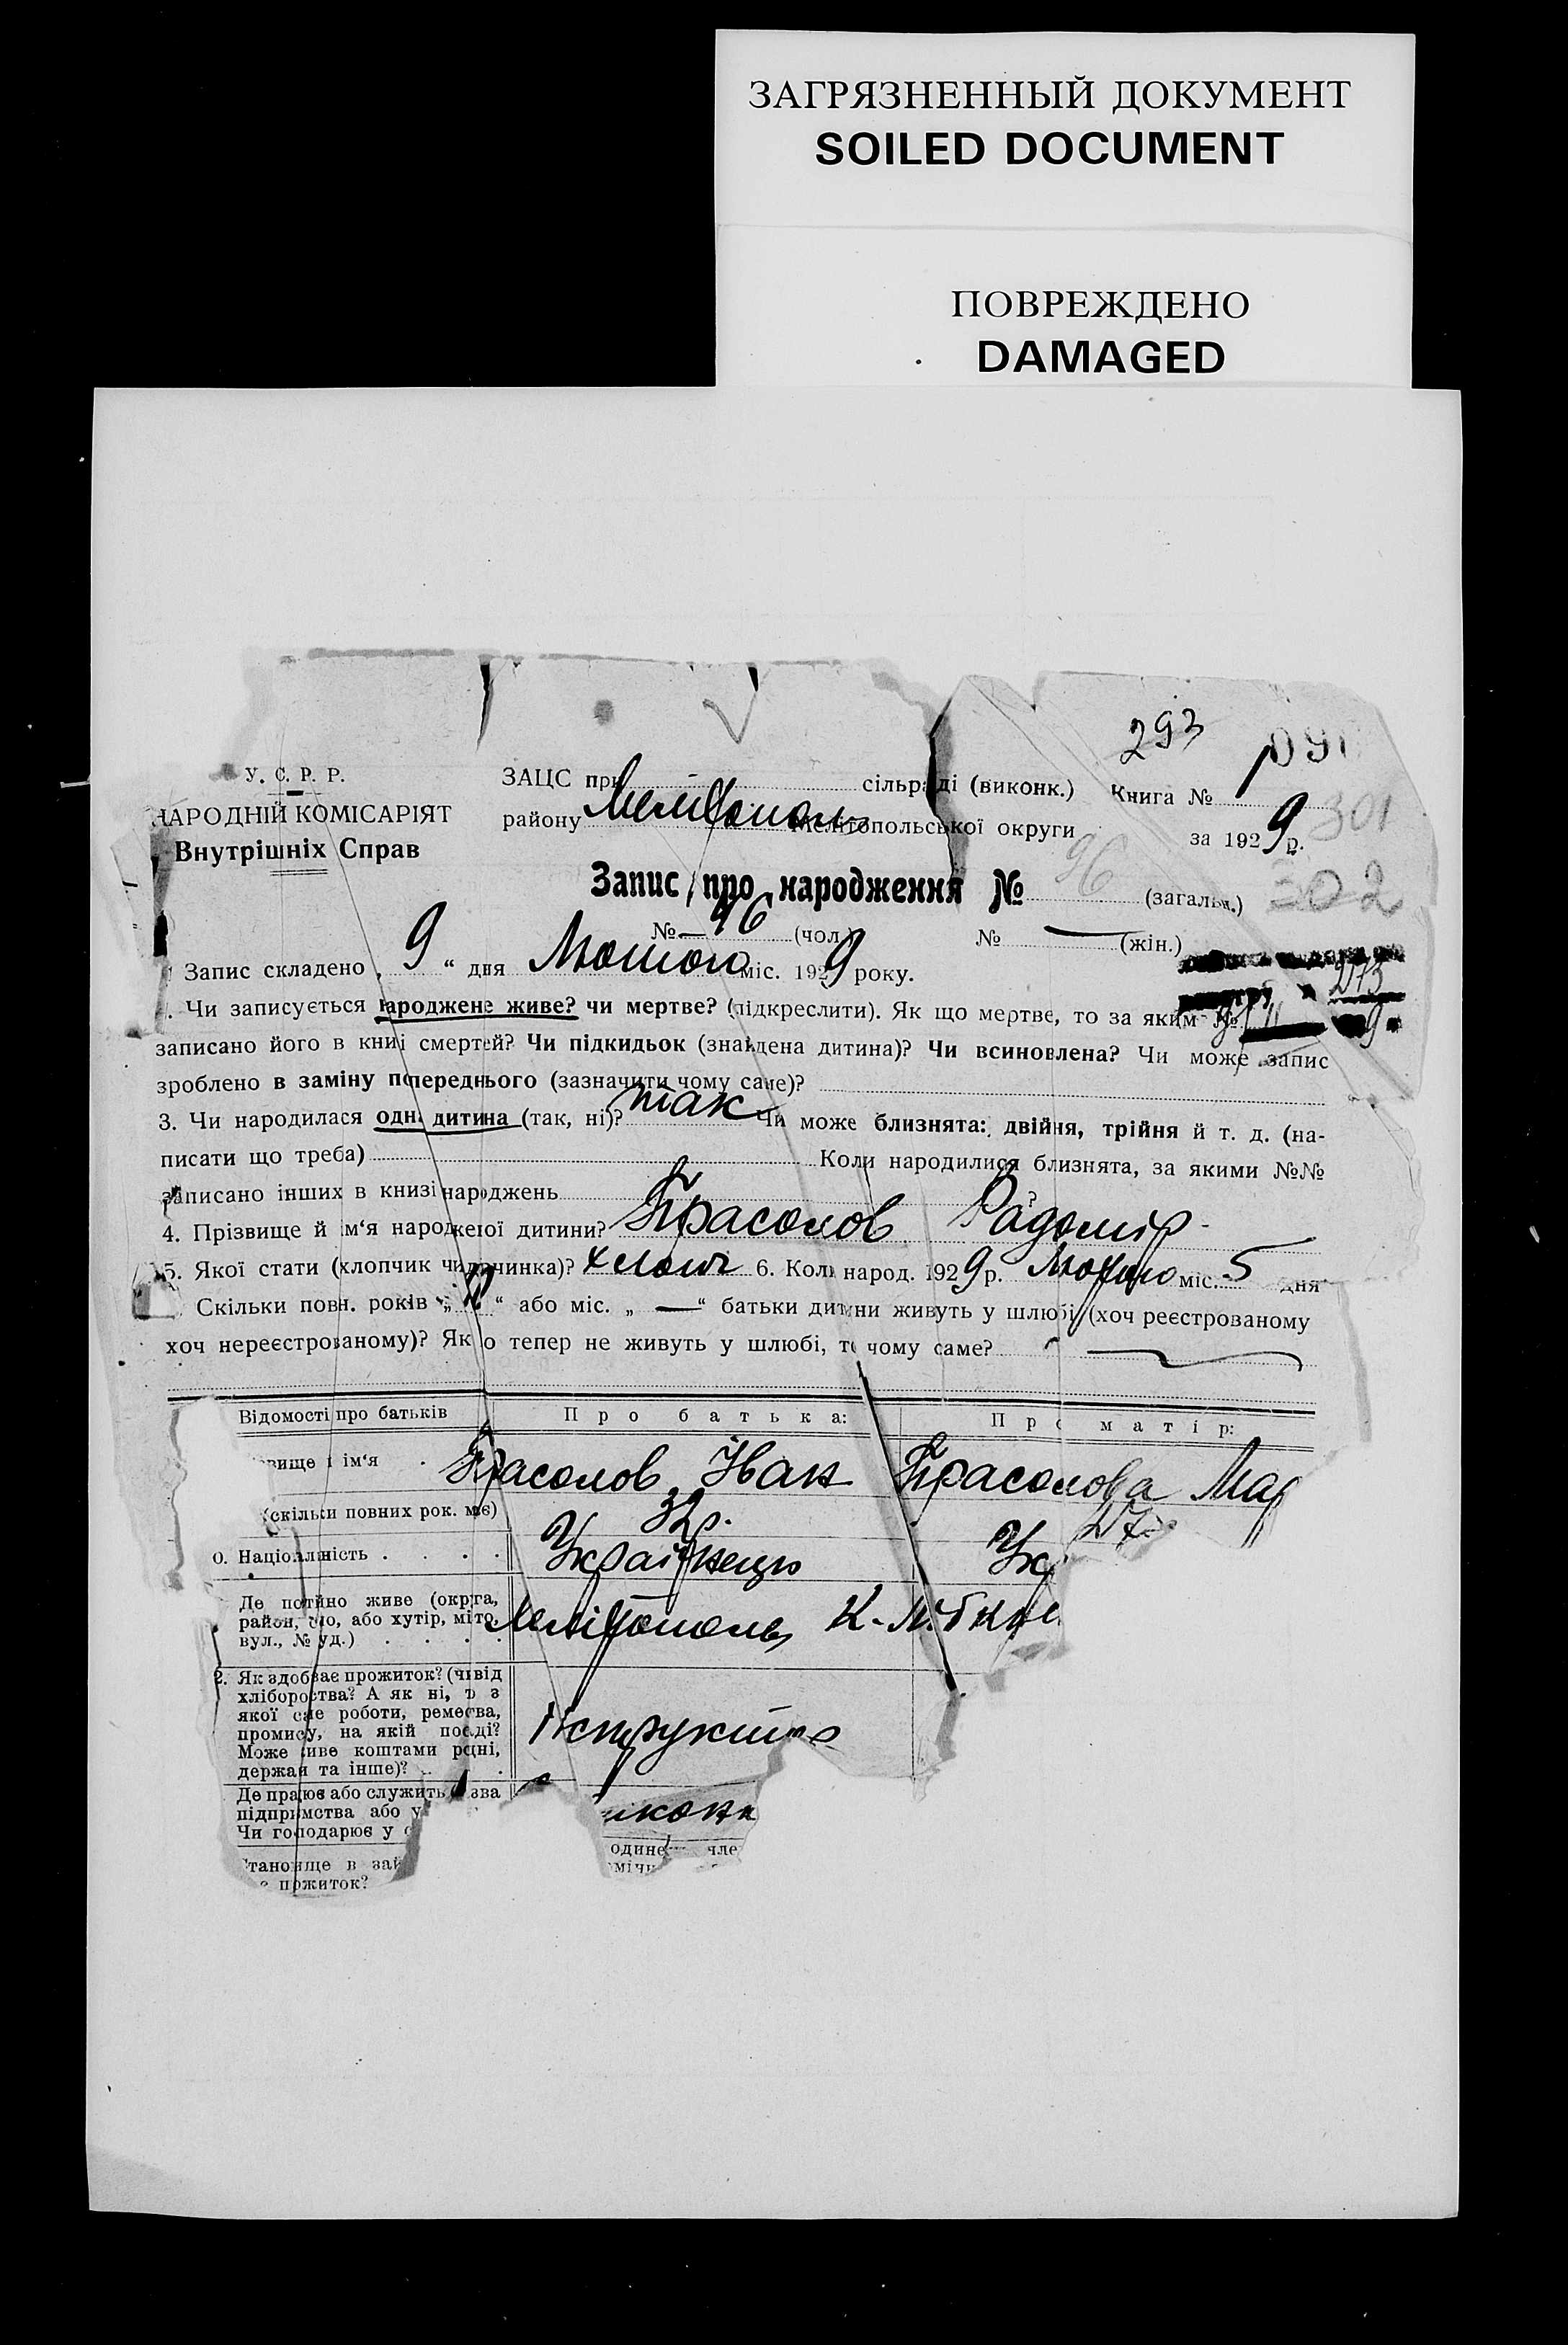 ЗАГРЯЗНЕННЫЙ ДОКУМЕНТ
SOILED DOCUMENT
ПОВРЕЖДЕНО
DAMAGED
293
У. С. Р. Р.
НАРОДНІЙ КОМІСАРІЯТ
Внутрішніх Справ
ЗАЦС при сільраді (виконк.) Книга №
району Мелітополь Мелітопольської округи за 1929 р. 301
Запис про народження № 96 (загальн.) 302
№ 96 (чол.) № — (жін.)
Запис складено „ 9 “ дня Лютого міс. 1929 року.
273
Чи записується народжене живе? чи мертве? (підкреслити). Як що мертве, то за яким №
записано його в книзі смертей? Чи підкидьок (знайдена дитина)? Чи всиновлена? Чи може запис
зроблено в заміну попереднього (зазначити чому саме)?
3. Чи народилася одна дитина (так, ні)? так Чи може близнята: двійня, трійня й т. д. (на-
писати що треба) Коли народилися близнята, за якими №№
записано інших в книзі народжень ?
4. Прізвище й ім‘я народженої дитини? Прасолов Радомір
5. Якої стати (хлопчик чи дівчинка)? хлопч 6. Коли народ. 1929 р. Лютого міс. 5 дня
Скільки повн. років „ “ або міс. „ — “ батьки дитини живуть у шлюбі (хоч реєстрованому
хоч нереєстрованому)? Як о тепер не живуть у шлюбі, то чому саме?
Відомості про батьків Про батька: Про матір:
вище і ім‘я Прасолов Іван Прасолова Мар
(скільки повних рок. має) 32 р. 27
0. Національність . . . . Українець Ук
Де постійно живе (округа,
район, село, або хутір, місто,
вул., № буд.) . . . . Мелітополь К-
2. Як здобуває прожиток? (чи від
хліборобства? А як ні, то з
якої саме роботи, ремества,
промислу, на якій посаді?
Може живе коштами родні,
держави та інше)? Інструктор
Де працює або служить зва
підприємства або у
Чи господарює у с
икони
одине чле
мічн
Становище в зай
прожиток?